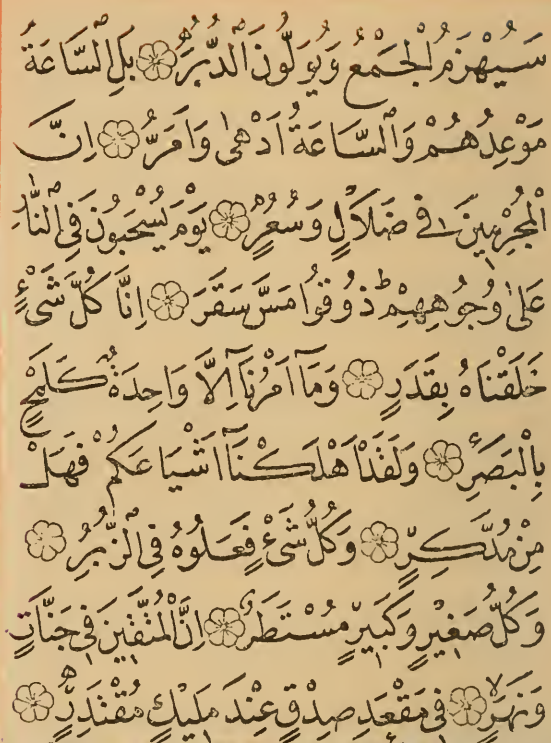 سَيُهْزَمُ الْجَمْعُ وَيُوَلُّونَ الدُّبُرَ ۝ بَلِ السَّاعَةُ
مَوْعِدُهُمْ وَالسَّاعَةُ اَدْهٰى وَاَمَرُّ ۝ اِنَّ
الْمُجْرِمِينَ فِى ضَلَالٍ وَسُعُرٍ ۝ يَوْمَ يُسْحَبُونَ فِى النَّارِ
عَلٰى وُجُوهِهِمْ ط ذُوقُوا مَسَّ سَقَرَ ۝ اِنَّا كُلَّ شَىْءٍ
خَلَقْنَاهُ بِقَدَرٍ ۝ وَمَآ اَمْرُنَآ اِلَّا وَاحِدَةٌ كَلَمْحٍ
بِالْبَصَرِ ۝ وَلَقَدْ اَهْلَكْنَآ اَشْيَاعَكُمْ فَهَلْ
مِنْ مُدَّكِرٍ ۝ وَكُلُّ شَىْءٍ فَعَلُوهُ فِى الزُّبُرِ ۝
وَكُلُّ صَغِيرٍ وَكَبِيرٍ مُسْتَطَرٌ ۝ اِنَّ الْمُتَّقِينَ فِى جَنَّاتٍ
وَنَهَرٍ ۝ فِى مَقْعَدِ صِدْقٍ عِنْدَ مَلِيكٍ مُقْتَدِرٍ ۝